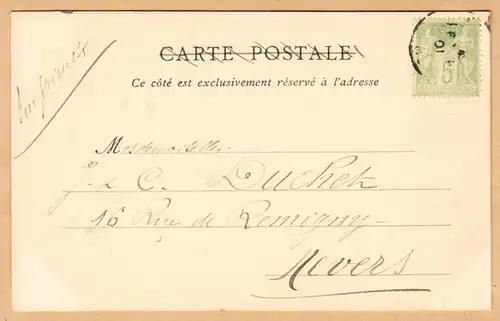 CARTE POSTALE
Ce côté est exclusivement réservé à l'adresse
Imprimés
5
01
Mesdemoiselles
J. & C. Duchet
16 Rue de Remigny
Nevers